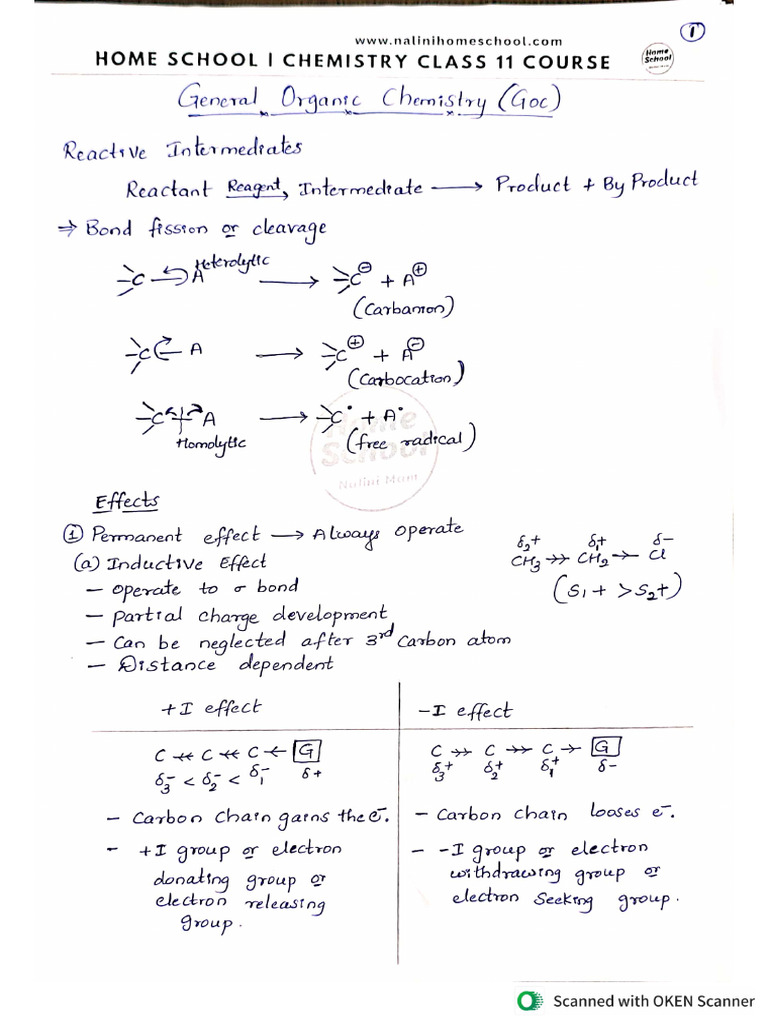 www.nalinihomeschool.com
1
HOME SCHOOL I CHEMISTRY CLASS 11 COURSE
Home School
General Organic Chemistry (GOC)
Reactive Intermediates
Reactant Reagent, Intermediate ⟶ Product + By Product
⇒ Bond fission or cleavage
C A Heterolytic ⟶ C⊖ + A⊕
(Carbanion)
C A ⟶ C⊕ + A⊖
(Carbocation)
C A ⟶ C• + A•
Homolytic (free radical)
Home School
Nalini Mam
Effects
① Permanent effect ⟶ Always operate
(a) Inductive Effect
δ₂+ δ₁+ δ-
CH₃ →→ CH₂ → Cl
- operate to σ bond
(S₁+ > S₂+)
- partial charge development
- Can be neglected after 3rd Carbon atom
- Distance dependent
+I effect
C ↞ C ↞ C ← G
δ₃- < δ₂- < δ₁- δ+
- Carbon Chain gains the e-.
- +I group or electron
donating group or
electron releasing
group.
-I effect
C →→ C →→ C → G
δ₃+ δ₂+ δ₁+ δ-
- Carbon chain looses e-.
- -I group or electron
withdrawing group or
electron seeking group.
Scanned with OKEN Scanner